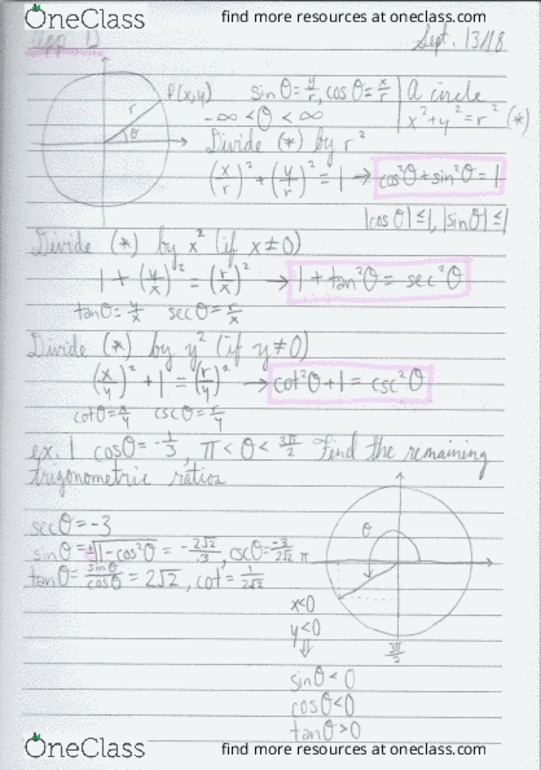 OneClass find more resources at oneclass.com
App D Sept. 13/18
P(x,y) sinθ = y/r, cosθ = x/r A circle
r θ -∞ < θ < ∞ x² + y² = r² (*)
Divide (*) by r²
(x/r)² + (y/r)² = 1 → cos²θ + sin²θ = 1
|cosθ| ≤ 1, |sinθ| ≤ 1
Divide (*) by x² (if x ≠ 0)
1 + (y/x)² = (r/x)² → 1 + tan²θ = sec²θ
tanθ = y/x secθ = r/x
Divide (*) by y² (if y ≠ 0)
(x/y)² + 1 = (r/y)² → cot²θ + 1 = csc²θ
cotθ = x/y cscθ = r/y
ex. 1 cosθ = -1/3, π < θ < 3π/2 Find the remaining
trigonometric ratios
secθ = -3
sinθ = ±√1-cos²θ = -2√2/3, cscθ = -3/2√2
tanθ = sinθ/cosθ = 2√2, cot = 1/2√2
θ
π
3π/2
x<0
y<0
⇓
sinθ < 0
cosθ < 0
tanθ > 0
OneClass find more resources at oneclass.com